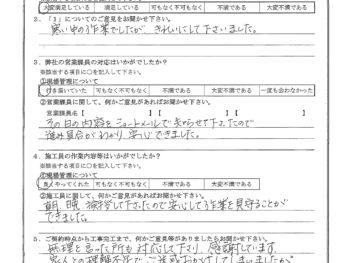 大変満足している 満足している 可もなく不可もなく 不満である 大変不満である
2. 「1」についてのご意見をお聞かせ下さい。
寒い中の作業でしたが、きれいにして下さいました。
3. 弊社の営業課員の対応はいかがでしたか？
※該当する項目に○を記入して下さい。
①現場管理について
行き届いていた 可もなく不可もなく 不満である 大変不満である 一度も会わなかった
②営業課員に関して、何かご意見があればお聞かせ下さい。
営業課員名【 】【 】【 】
その日の内容をショートメールで知らせて下さったので
進み具合がわかり、安心できました。
4. 施工員の作業内容等はいかがでしたか？
※該当する項目に○を記入して下さい。
①現場管理について
良くやってくれた 可もなく不可もなく 不満である 大変不満である
②施工員に関して、何かご意見があればお聞かせ下さい。
朝、晩、挨拶して下さったので安心して作業を見守ることが
できました。
5. ご契約時点から工事完工まで、何かご意見等がありましたらお聞かせ下さい。
無理を言った所も対応して下さり、感謝しています。